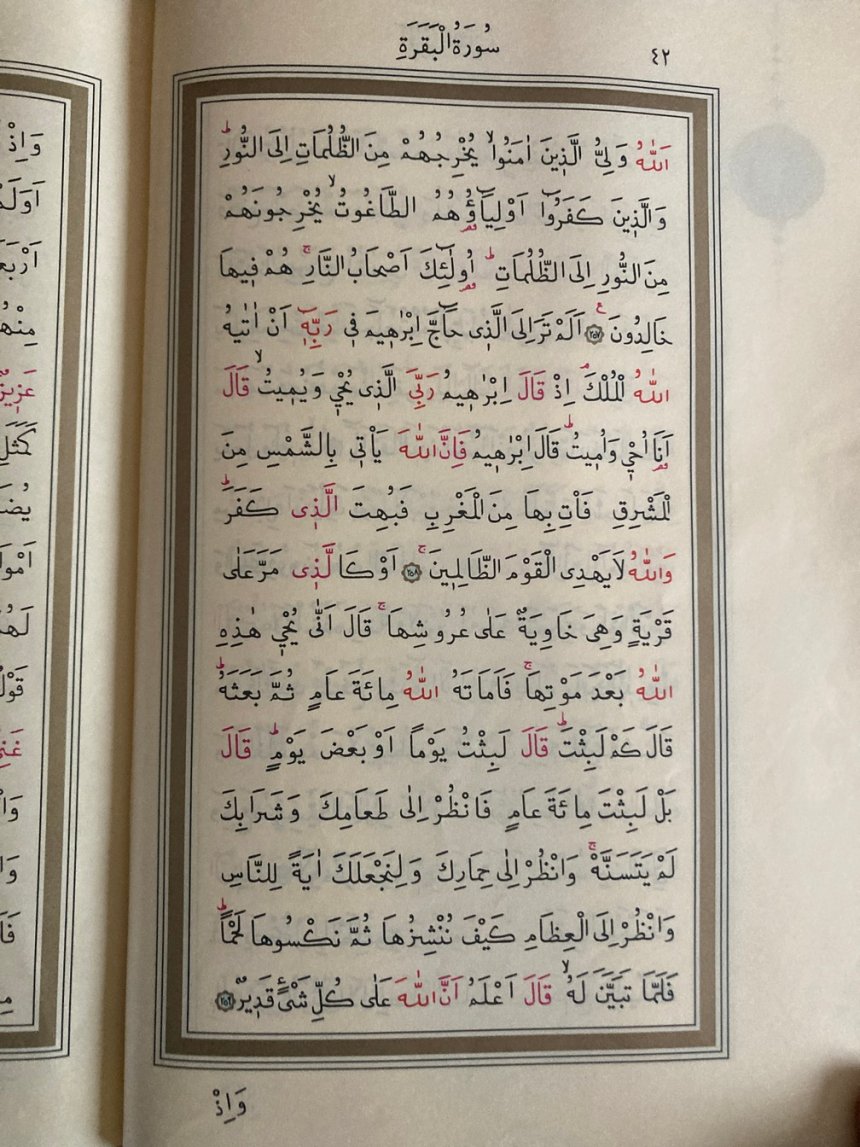 سُورَةُ الْبَقَرَةِ
٤٢
اَللّٰهُ وَلِيُّ الَّذ۪ينَ اٰمَنُواۙ يُخْرِجُهُمْ مِنَ الظُّلُمَاتِ اِلَى النُّورِۜ
وَالَّذ۪ينَ كَفَرُٓوا اَوْلِيَٓاؤُ۬هُمُ الطَّاغُوتُۙ يُخْرِجُونَهُمْ
مِنَ النُّورِ اِلَى الظُّلُمَاتِۜ اُو۬لٰٓئِكَ اَصْحَابُ النَّارِۚ هُمْ ف۪يهَا
خَالِدُونَ۟ ﴿٢٥٧﴾ اَلَمْ تَرَ اِلَى الَّذ۪ي حَٓاجَّ اِبْرٰه۪يمَ ف۪ي رَبِّه۪ٓ اَنْ اٰتٰيهُ
اللّٰهُ الْمُلْكَۢ اِذْ قَالَ اِبْرٰه۪يمُ رَبِّيَ الَّذ۪ي يُحْي۪ وَيُم۪يتُۙ قَالَ
اَنَا۬ اُحْي۪ وَاُم۪يتُۜ قَالَ اِبْرٰه۪يمُ فَاِنَّ اللّٰهَ يَأْت۪ي بِالشَّمْسِ مِنَ
الْمَشْرِقِ فَأْتِ بِهَا مِنَ الْمَغْرِبِ فَبُهِتَ الَّذ۪ي كَفَرَۜ
وَاللّٰهُ لَا يَهْدِي الْقَوْمَ الظَّالِم۪ينَۚ ﴿٢٥٨﴾ اَوْ كَالَّذ۪ي مَرَّ عَلٰى
قَرْيَةٍ وَهِيَ خَاوِيَةٌ عَلٰى عُرُوشِهَاۚ قَالَ اَنّٰى يُحْي۪ هٰذِهِ
اللّٰهُ بَعْدَ مَوْتِهَاۚ فَاَمَاتَهُ اللّٰهُ مِائَةَ عَامٍ ثُمَّ بَعَثَهُۜ
قَالَ كَمْ لَبِثْتَۜ قَالَ لَبِثْتُ يَوْماً اَوْ بَعْضَ يَوْمٍۜ قَالَ
بَلْ لَبِثْتَ مِائَةَ عَامٍ فَانْظُرْ اِلٰى طَعَامِكَ وَشَرَابِكَ
لَمْ يَتَسَنَّهْۚ وَانْظُرْ اِلٰى حِمَارِكَ وَلِنَجْعَلَكَ اٰيَةً لِلنَّاسِ
وَانْظُرْ اِلَى الْعِظَامِ كَيْفَ نُنْشِزُهَا ثُمَّ نَكْسُوهَا لَحْماًۜ
فَلَمَّا تَبَيَّنَ لَهُۙ قَالَ اَعْلَمُ اَنَّ اللّٰهَ عَلٰى كُلِّ شَيْءٍ قَد۪يرٌ ﴿٢٥٩﴾
وَاِذْ